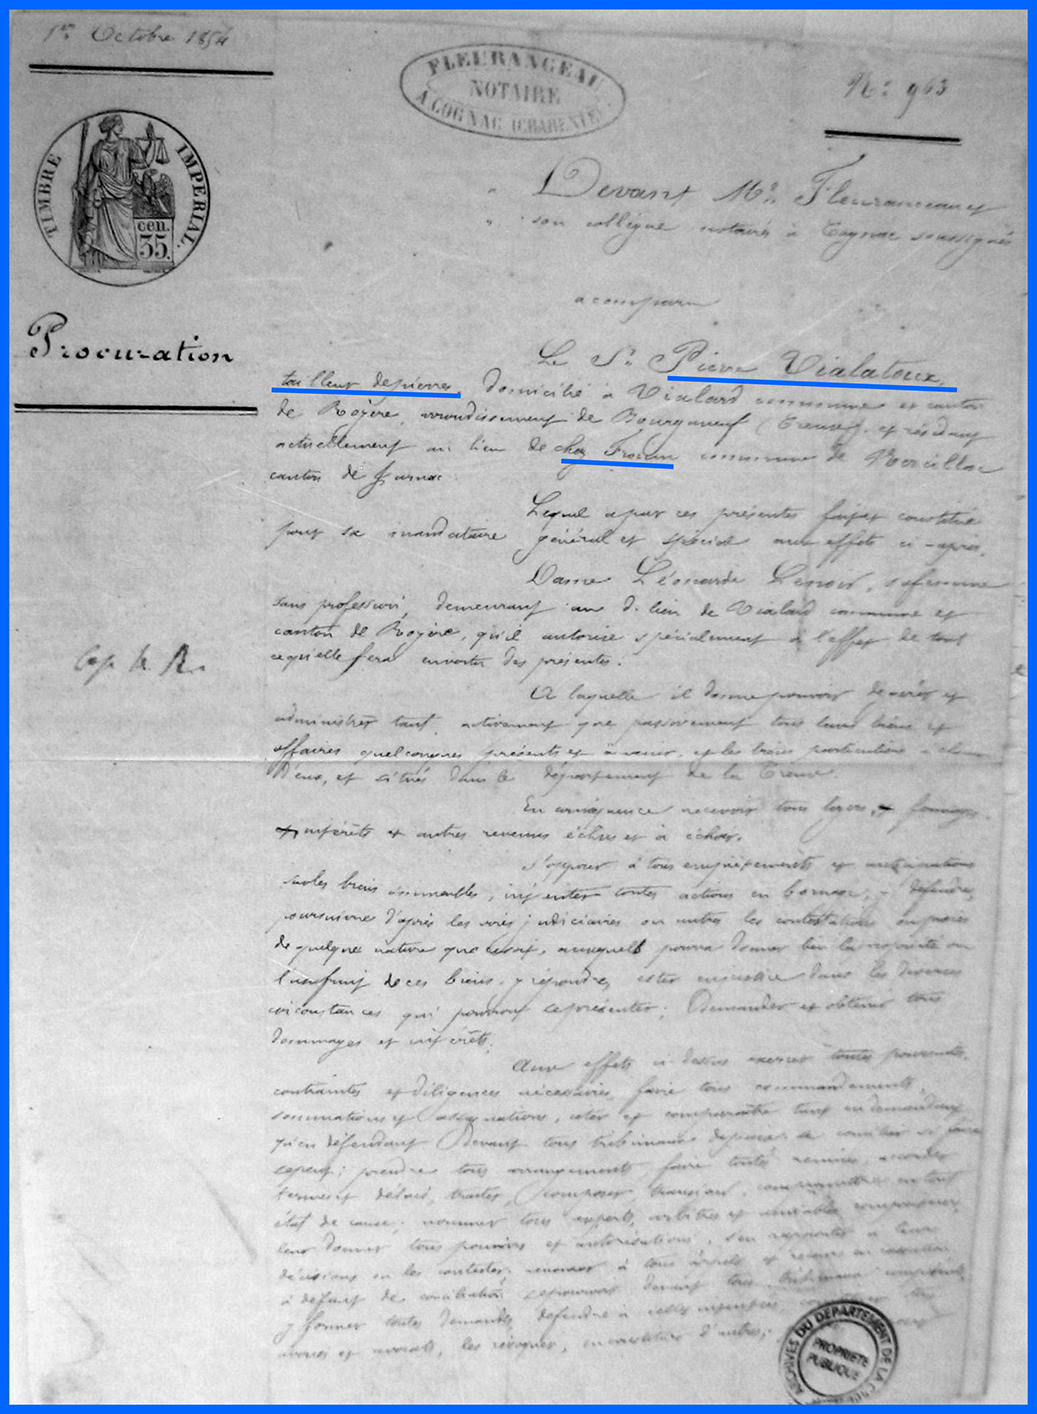 1er Octobre 1854
FLEURANGEAU
NOTAIRE
A COGNAC (CHARENTE)
No 963
TIMBRE IMPERIAL.
cen.
35.
Procuration
Devant Me Fleurangeau
son collègue notaires à Cognac soussignés
a comparu
Le Sr Pierre Vialatoux,
tailleur de pierres, domicilié à Vialard commune et canton
de Royère, arrondissement de Bourganeuf (Creuse), et résidant
actuellement au lieu de chez commune de
canton de Jarnac
Lequel a par ces présentes fait et constitué
pour sa mandataire général et spécial aux effets ci-après.
Dame Léonarde Lenoir, sa femme
sans profession, demeurant au d. lieu de Vialard commune et
canton de Royère, qu'il autorise spécialement à l'effet de tout
ce qu'elle fera en vertu des présentes.
A laquelle il donne pouvoir de gérer et
administrer tant activement que passivement tous leurs biens et
affaires quelconques présents et à venir, et les biens particuliers à chacun
d'eux, et situés dans le département de la Creuse.
En conséquence recevoir tous loyers, fermages
intérêts et autres revenus échus et à échoir.
S'opposer à tous et
sur les biens immeubles, intenter toutes actions en bornage, y défendre,
poursuivre d'après les voies judiciaires ou autres les contestations ou procès
de quelque nature que ce soit, auxquels pourra donner lieu la propriété ou
l'usufruit de ces biens, y répondre, ester en justice dans les diverses
circonstances qui pourront se présenter; Demander et obtenir tous
dommages et intérêts.
Aux effets ci dessus exercer toutes poursuites,
contraintes et diligences nécessaires, faire tous commandements,
sommations et assignations, citer et comparaître tant en demandant
qu'en défendant Devant tous tribunaux de paix, se concilier si faire
se peut; prendre tous arrangements, faire toutes remises, accorder
termes et délais, traiter, composer, transiger, compromettre en tout
état de cause; nommer tous experts, arbitres et
leur donner tous pouvoirs et autorisations, s'en rapporter à leurs
décisions ou les contester; renoncer à tous appels et recours en cassation
à défaut de conciliation se pourvoir devant tous tribunaux compétents
y former toutes demandes, défendre à celles intentées, constituer tous
avoués et avocats, les révoquer, en constituer d'autres;
Cap le R.
ARCHIVES DU DEPARTEMENT DE LA
PROPRIETE
PUBLIQUE